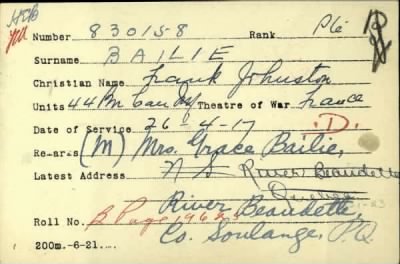 HCB
Number 830158 Rank Pte
Surname BAILIE
Christian Name Frank Johnston
Units 44 Bn Can Inf Theatre of War France
Date of Service 26-4-17 .D.
Remarks (M) Mrs. Grace Bailie,
Latest Address N S River Beaudette
Quebec
River Beaudette,
Roll No. B Page 1962
Co. Soulange, P.Q.
200m.-6-21.